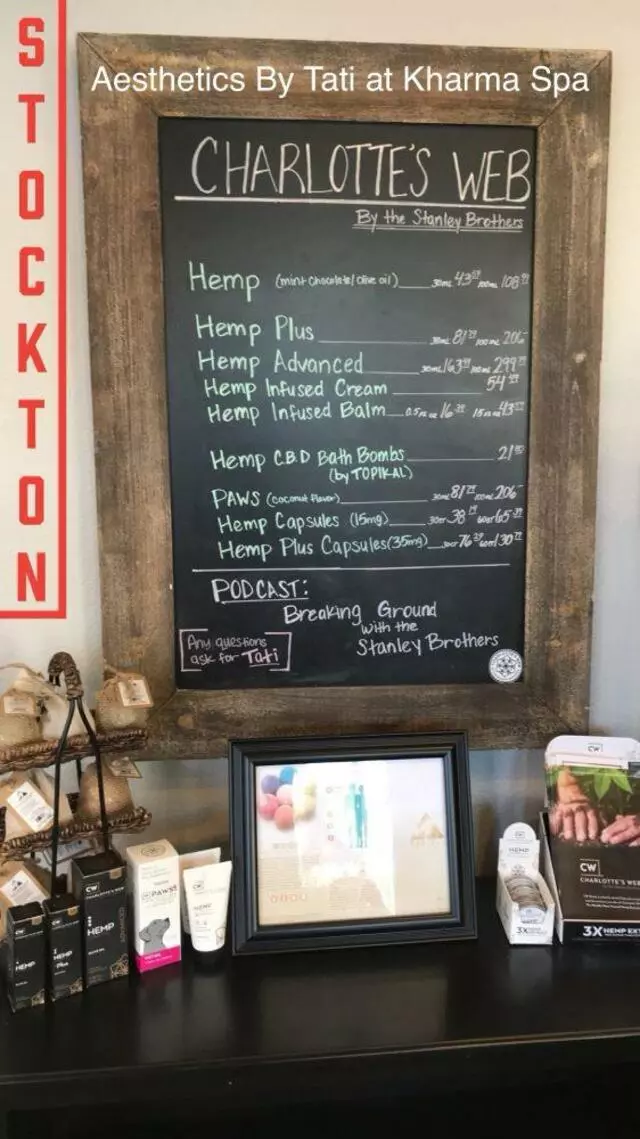 STOCKTON
Aesthetics By Tati at Kharma Spa
CHARLOTTE'S WEB
By the Stanley Brothers
Hemp (mint chocolate/olive oil) 30mL 43 100mL 108
Hemp Plus 30mL 81 100mL 206
Hemp Advanced 30mL 163 100mL 299
Hemp Infused Cream 54
Hemp Infused Balm 0.5 16 1.5 43
Hemp C.B.D Bath Bombs 21
(by TOPIKAL)
PAWS (coconut flavor) 30mL 81 100mL 206
Hemp Capsules (15mg) 30ct 38 60ct 65
Hemp Plus Capsules (35mg) 30ct 76 60ct 130
PODCAST:
Breaking Ground
with the
Stanley Brothers
Any questions
ask for Tati
CW
CW
HEMP
HEMP
Plus
CW
CHARLOTTE'S WEB
HEMP
PAWS
CW
HEMP
HEMP
3X
CW
CHARLOTTE'S WEB
3X HEMP EXT